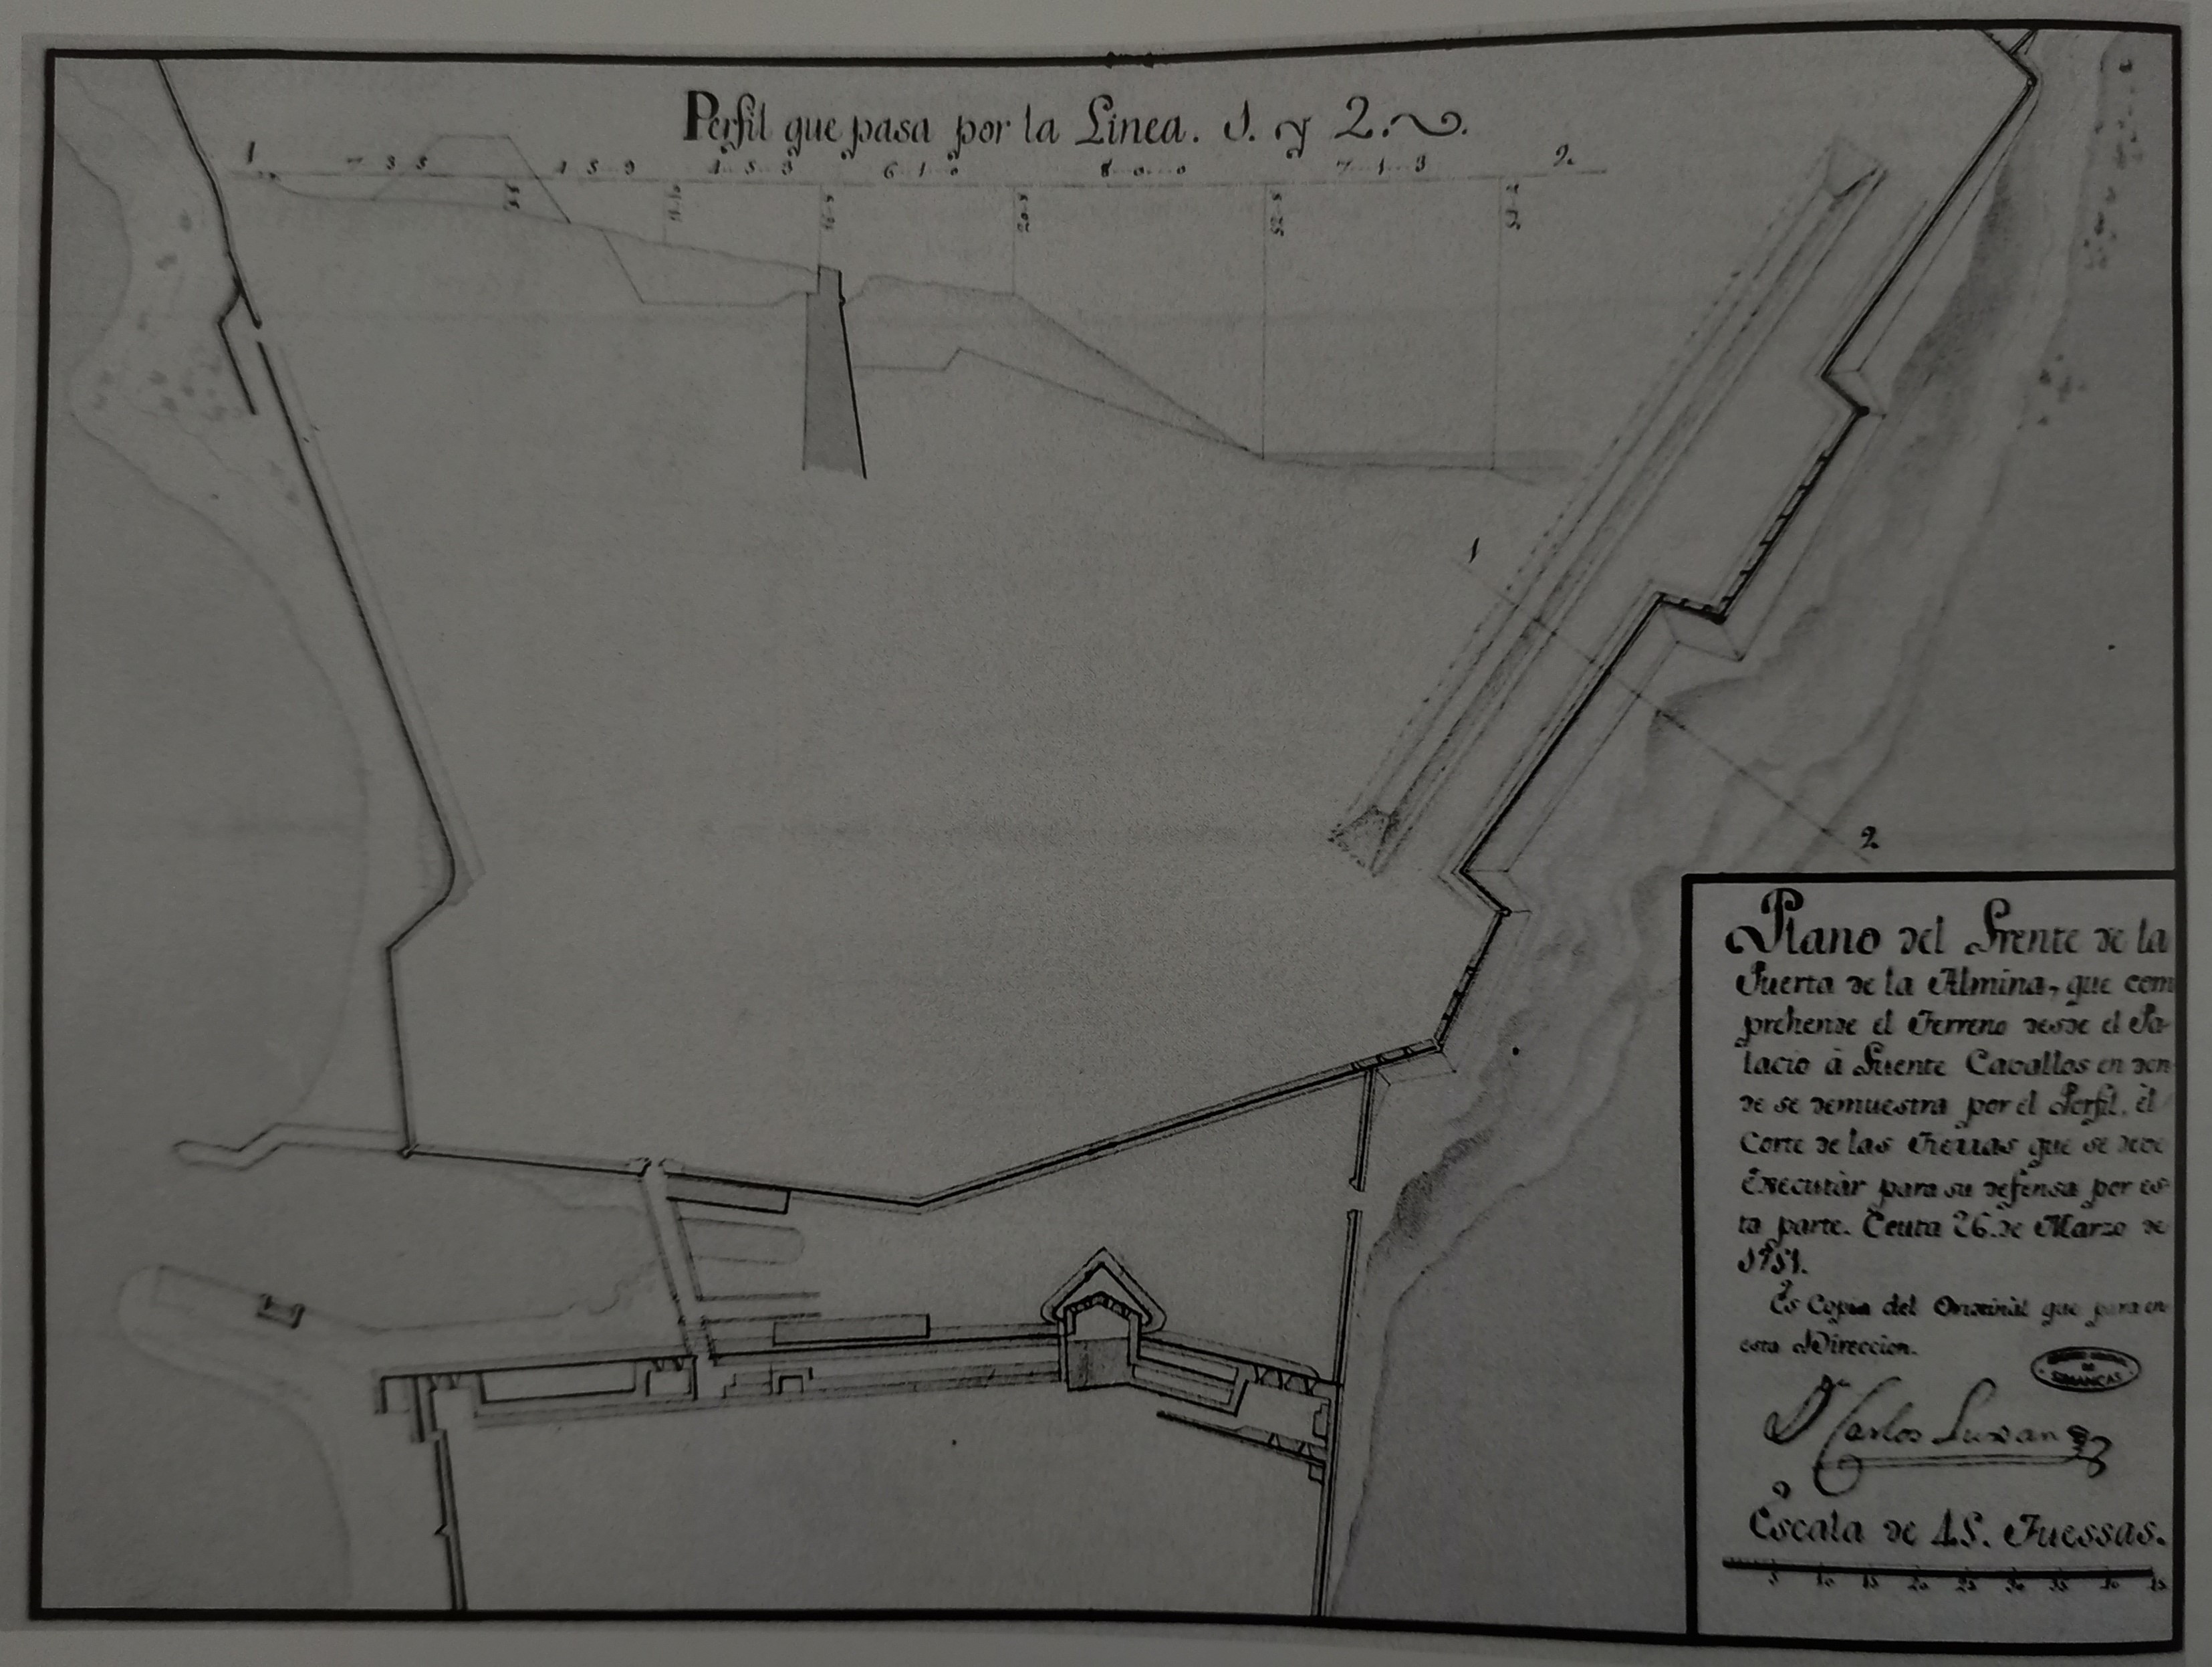 Perfil que pasa por la Linea. 1. y 2.
1
7 3 5
4 5 9
4 5 3
6 1 0
8 0 0
7 1 3
2.
1
2.
Plano del Frente de la
Puerta de la Almina, que com
prehende el Terreno desde el Pa-
lacio â Fuente Cavallos en don
de se demuestra por el Perfil, el
Corte de las Tierras que se deve
Executàr para su defensa por es-
ta parte. Ceuta 26. de Marzo de
1751.
Es Copia del Orixinàl que para en
esta Direccion.
SIMANCAS
Dn Carlos Luxan
Escala de 45. Tuessas.
5 10 15 20 25 30 35 40 45